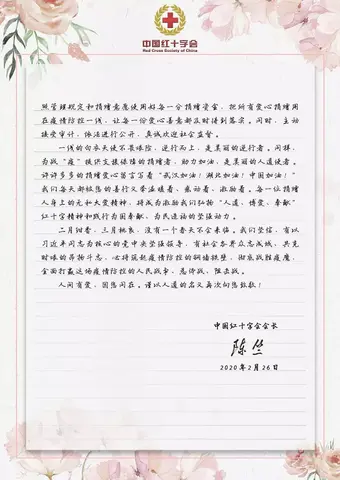 中国红十字会
Red Cross Society of China
照管理规定和捐赠意愿使用好每一分捐赠资金,把所有爱心捐赠用
在疫情防控一线,让每一份爱心善意都及时得到落实。同时,主动
接受审计,依法进行公开,真诚欢迎社会监督。
一线的白衣天使不畏艰险,逆行而上,是美丽的逆行者。同样,
为战“疫”提供支援保障的捐赠者,助力加油,是美丽的人道使者。
许许多多的捐赠爱心留言写着“武汉加油!湖北加油!中国加油!”
我们每天都被您的善行义举温暖着、感动着、激励着。每一位捐赠
人身上的无私大爱精神,将成为激励我们弘扬“人道、博爱、奉献”
红十字精神和践行为国奉献、为民造福的坚强动力。
二月柳青,三月桃长,没有一个春天不会来临。我们坚信,有以
习近平同志为核心的党中央坚强领导,有社会各界众志成城、共克
时艰的昂扬斗志,必将筑起疫情防控的铜墙铁壁,彻底战胜疫魔,
全面打赢这场疫情防控的人民战争、总体战、阻击战。
人间有爱,因您同在。谨以人道的名义再次向您致敬!
中国红十字会会长
陈竺
2020年2月26日